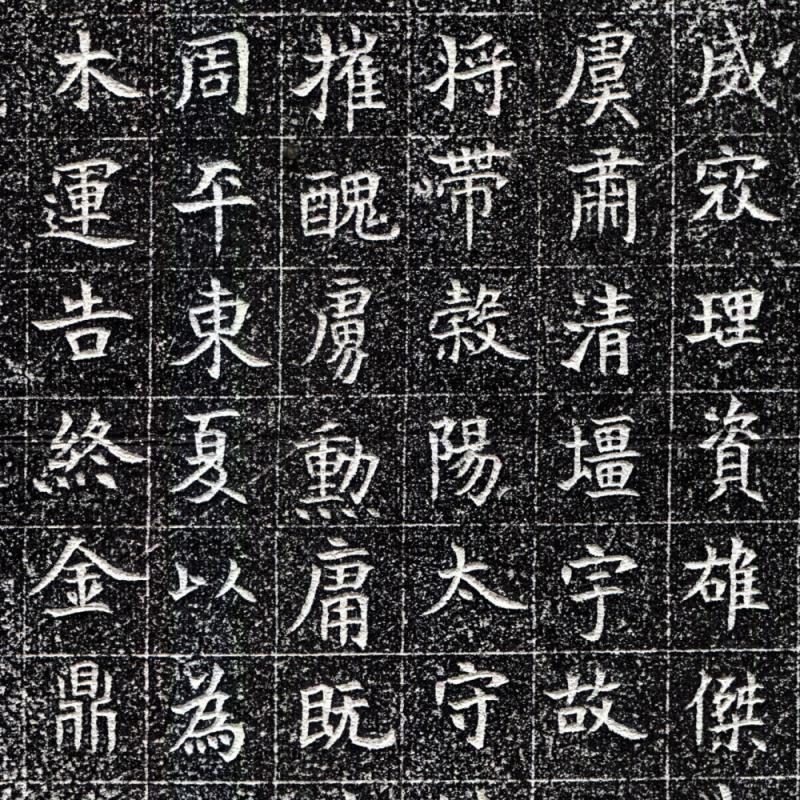 威理資雄傑
虞肅清壃宇故
将帶榖陽太守
摧醜虜勳庸既
周平東夏以為
木運告終金鼎